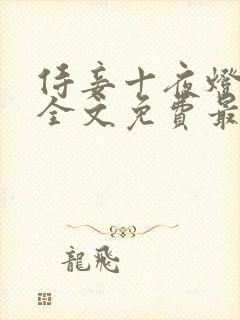 侍妾十夜燈
全文免費最
龍飛